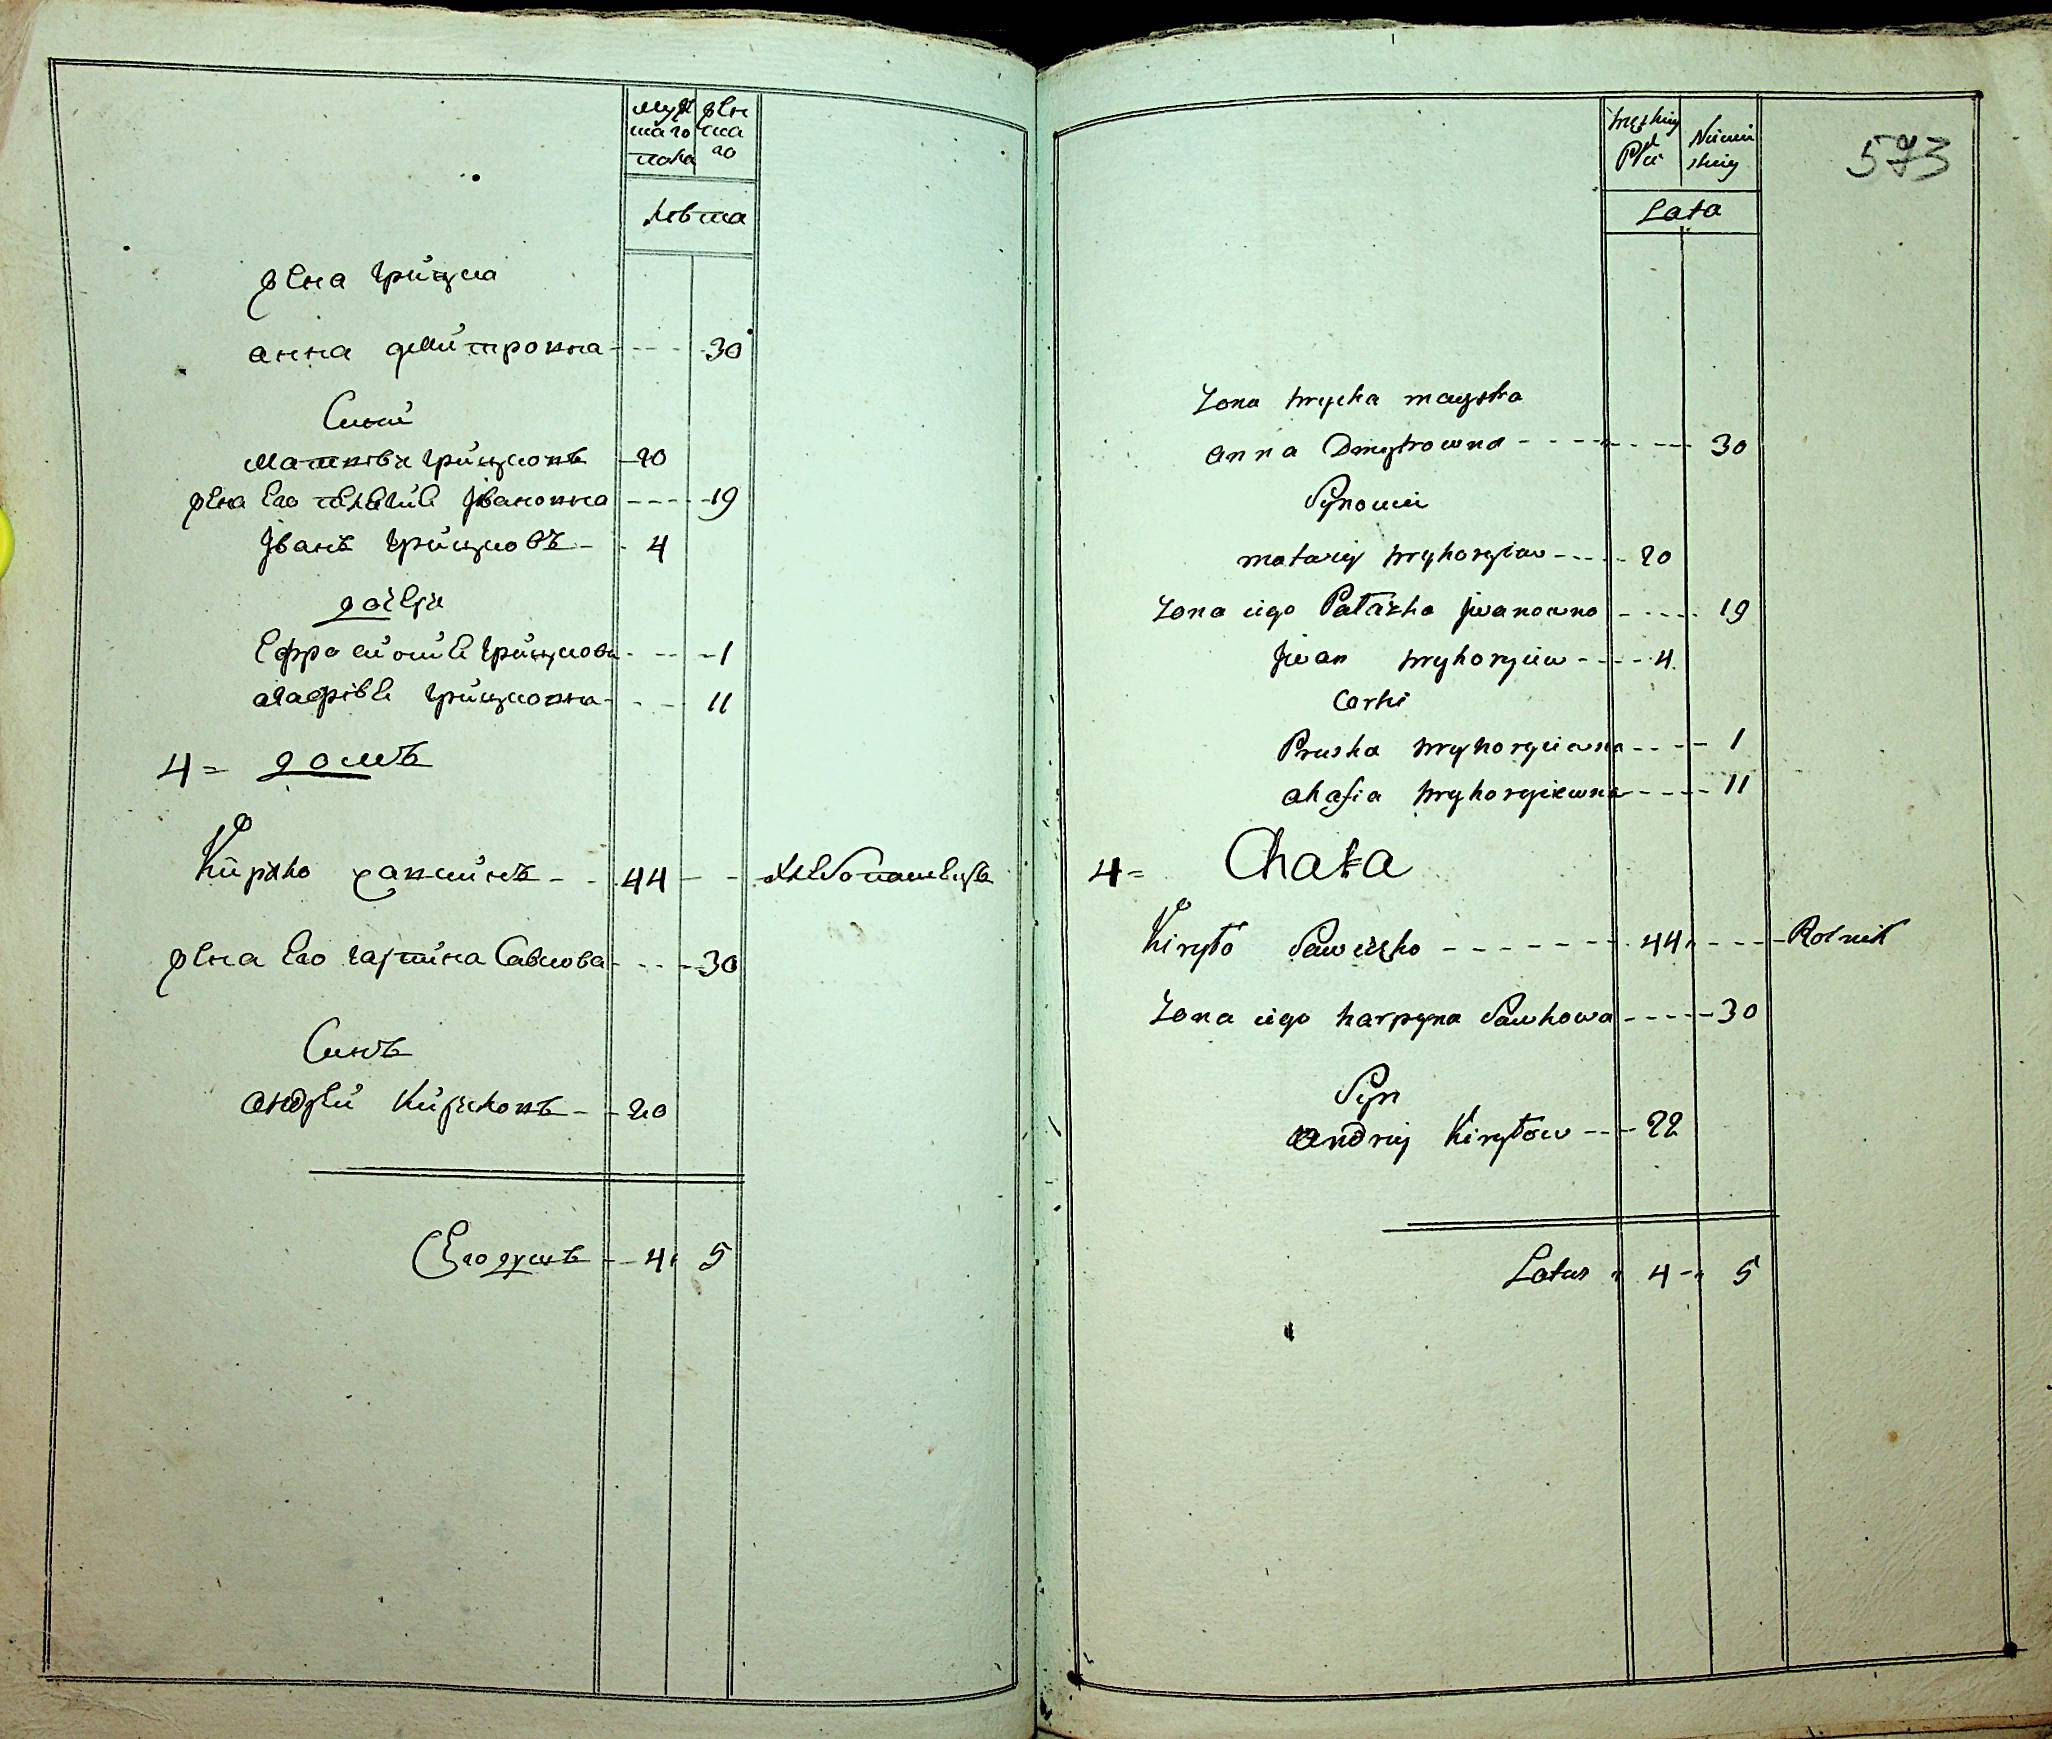 Муж
скаго
пола
Жен
ска
го
Лѣта
жена Грицка
анна дмитровна 30
Сыны
Матвѣй Грицковъ 20
жена Его пелагия Ивановна 19
Іванъ Грицковъ 4
дочери
Ефросиния Грицкова 1
агафия Грицковна 11
4 = домъ
Кирило 44 Хлебопашецъ
жена Его гарпина Савкова 30
Сынъ
андрей Кириловъ 20
Его душъ 4 5
Męzkiey
Płci
Niewie
skiey
573
Lata
Zona hrycka
anna Dmytrowna 30
Synowie
matwiy hryhoryiow 20
Zona iego Pałażka Jwanowna 19
Jwan hryhoryiew 4
Corki
Pruska hryhoryiewna 1
ahafia hryhoryiewna 11
4 = Chata
Kiryło Saweczko 44 Rolnik
Zona iego harpyna Sawkowa 30
Syn
andriy Kiryłow 22
Latus 4 5